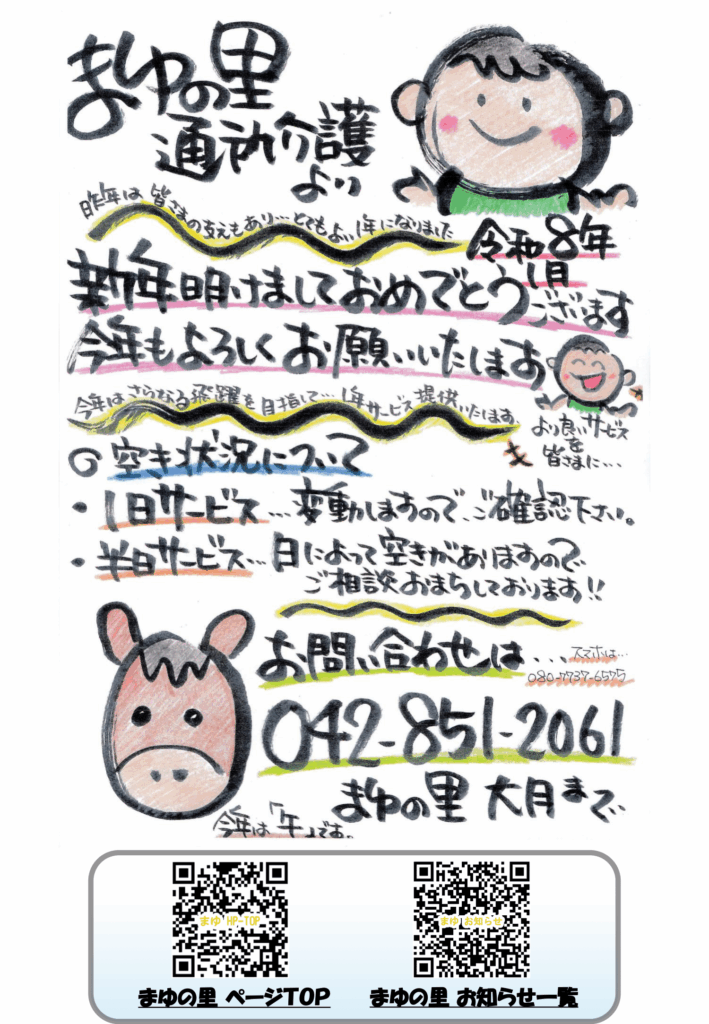 まゆの里
通所介護
より
昨年は皆さまの支えもあり…とてもよい1年になりました
令和8年
1月
新年明けましておめでとうございます
今年もよろしくお願いいたします
今年はさらなる飛躍を目指して…1年サービス提供いたします
より良いサービス
を
皆さまに…
空き状況について
・1日サービス…変動しますので、ご確認下さい。
・半日サービス…日によって空きがありますので
ご相談おまちしております!!
お問い合わせは...
スマホは…
080-7737-6575
042-851-2061
まゆの里 大月まで
今年は「午」です。
まゆ HP-TOP
まゆ お知らせ
まゆの里 ページTOP
まゆの里 お知らせ一覧